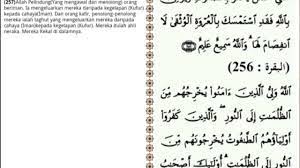 (257)Allah Pelindung(Yang mengawal dan menolong) orang
beriman. Ia mengeluarkan mereka daripada kegelapan (Kufur)
kepada cahaya(Iman). Dan orang kafir, penolong-penolong
mereka ialah taghut yang mengeluarkan mereka daripada
cahaya (Iman)kepada kegelapan (Kufur). Mereka itulah ahli
neraka. Mereka Kekal di dalamnya.
بِاللَّهِ فَقَدِ اسْتَمْسَكَ بِالْعُرْوَةِ الْوُثْقَىٰ لَا
انفِصَامَ لَهَا ۗ وَاللَّهُ سَمِيعٌ عَلِيمٌ
(البقرة : 256)
اللَّهُ وَلِيُّ الَّذِينَ آمَنُوا يُخْرِجُهُم مِّنَ
الظُّلُمَاتِ إِلَى النُّورِ ۖ وَالَّذِينَ كَفَرُوا
أَوْلِيَاؤُهُمُ الطَّاغُوتُ يُخْرِجُونَهُم مِّنَ
النُّورِ إِلَى الظُّلُمَاتِ ۗ أُولَٰئِكَ أَصْحَابُ